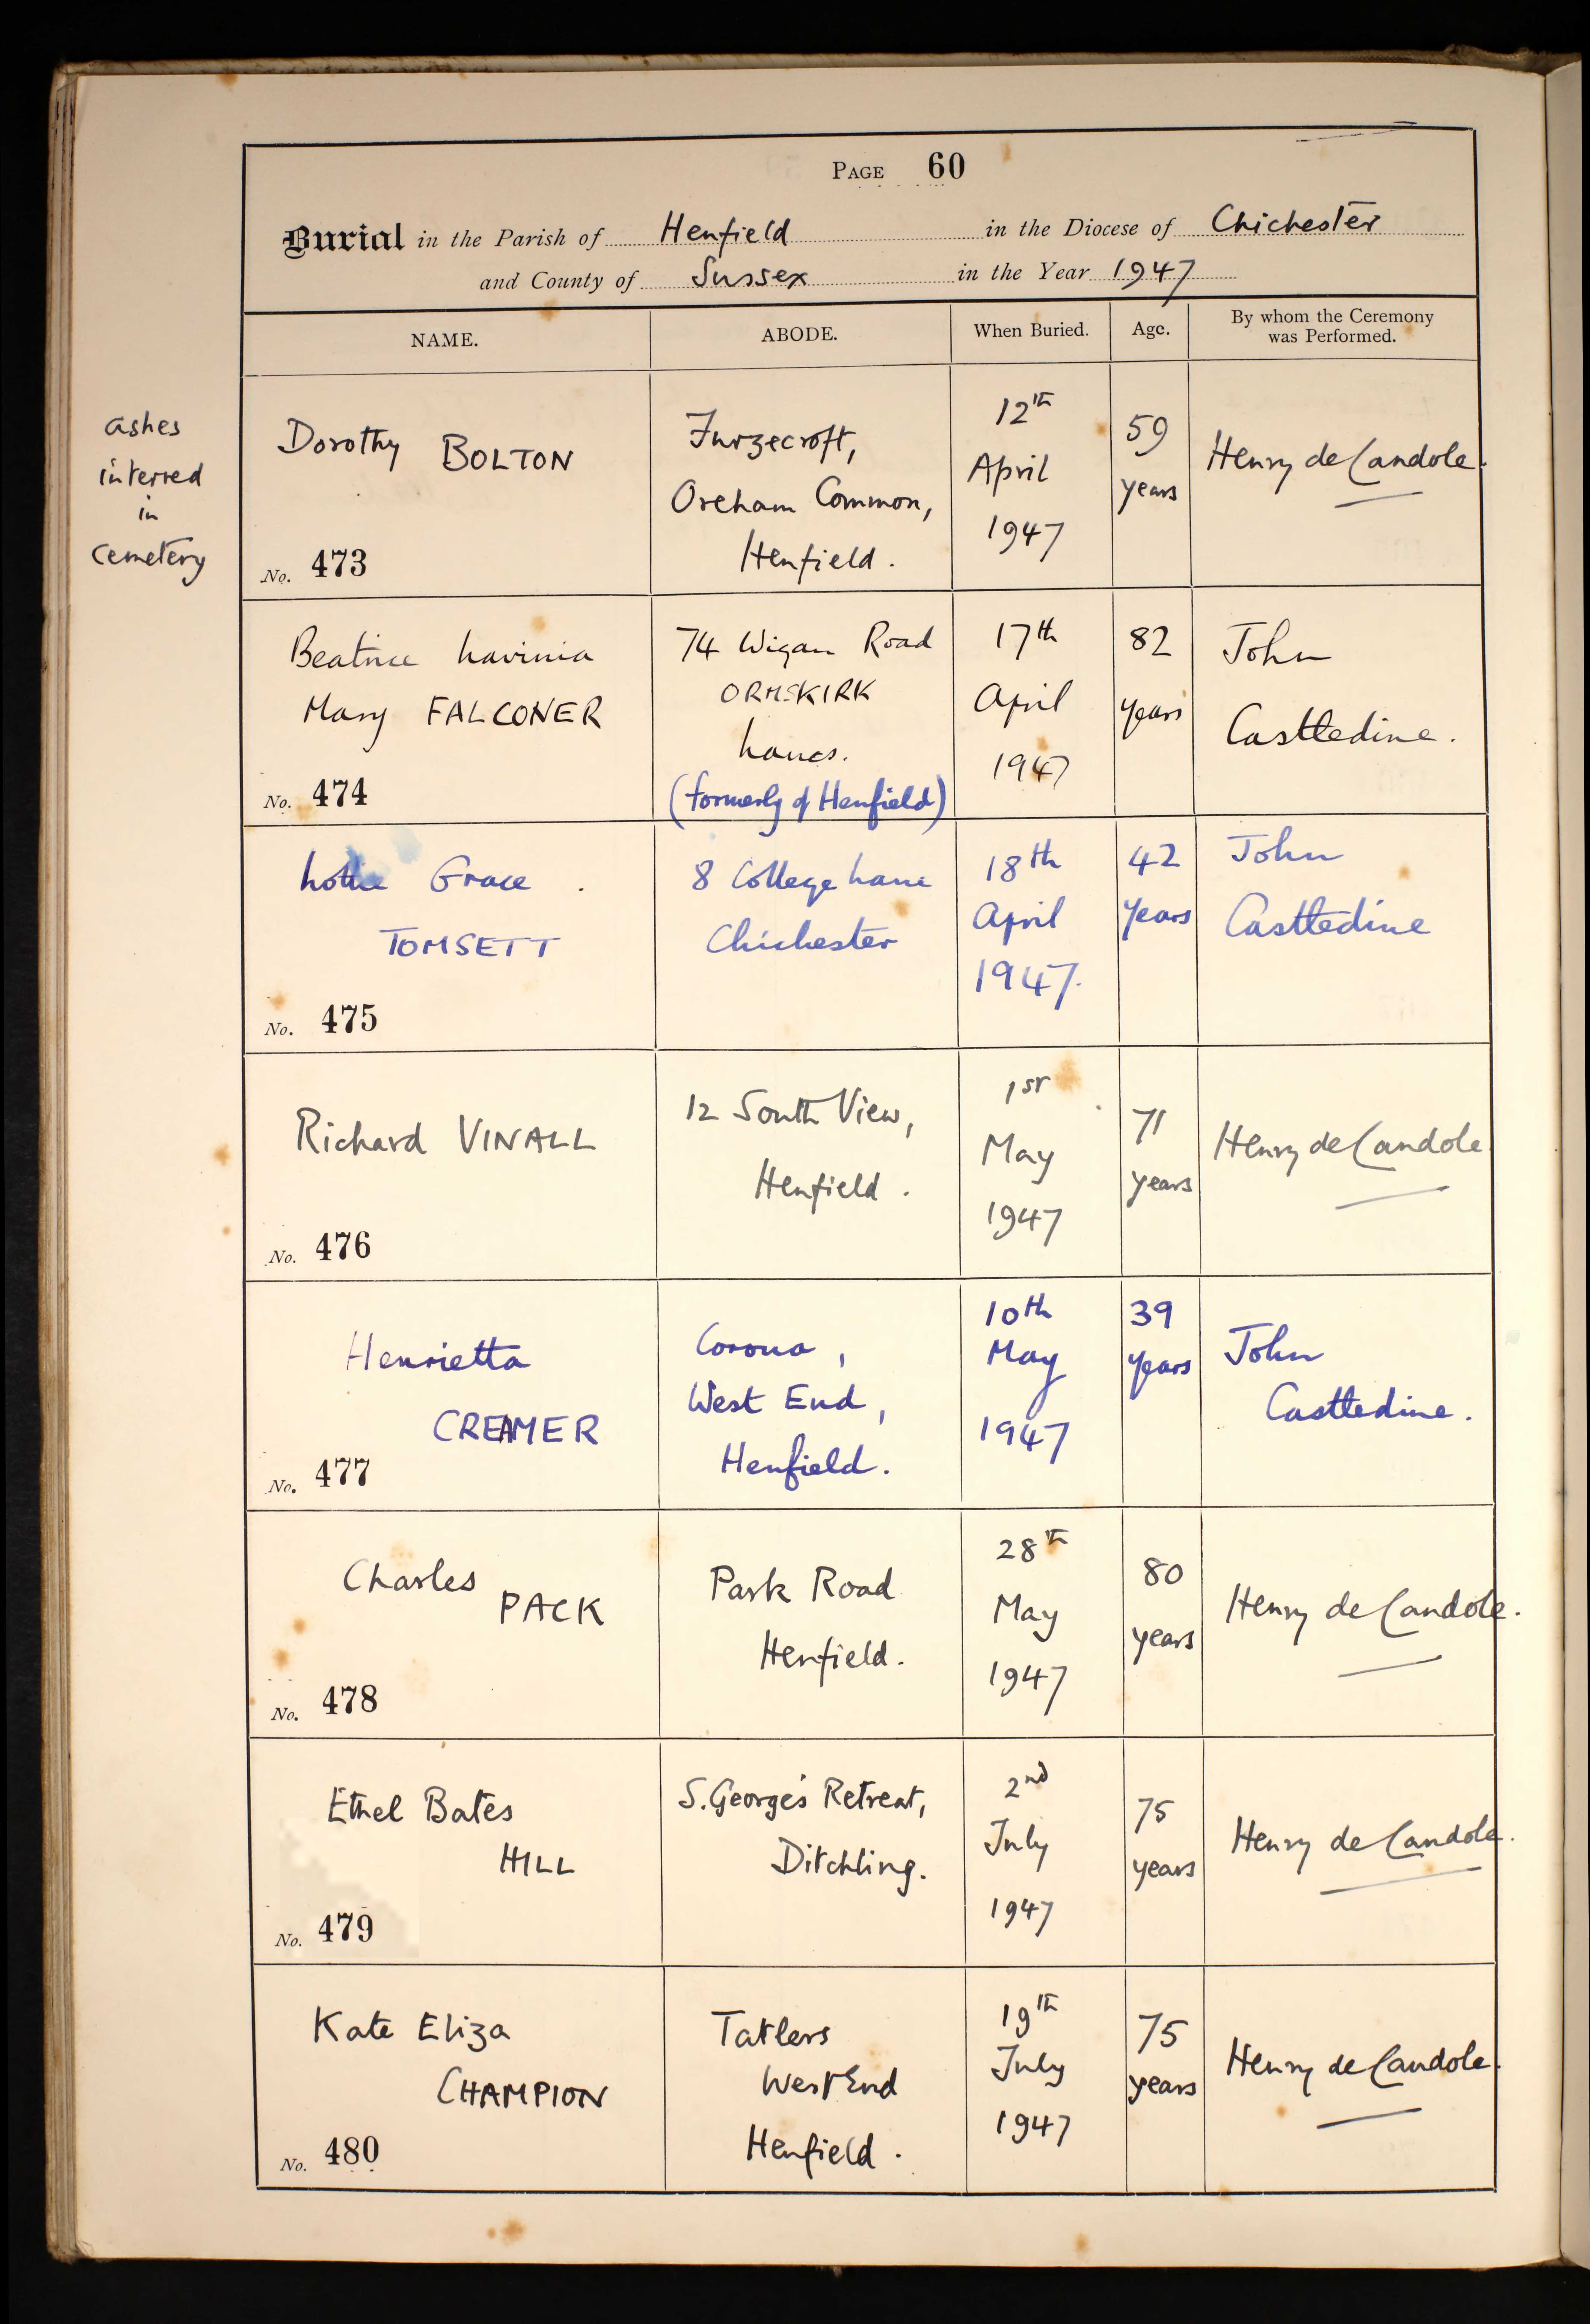 PAGE 60
Burial in the Parish of Henfield in the Diocese of Chichester
and County of Sussex in the Year 1947
NAME. ABODE. When Buried. Age. By whom the Ceremony was Performed.
ashes
interred
in
cemetery
Dorothy BOLTON
No. 473
Furzecroft,
Oreham Common,
Henfield.
12th
April
1947
59
years
Henry de Candole.
Beatrice Lavinia
Mary FALCONER
No. 474
74 Wigan Road
ORMSKIRK
Lancs.
(formerly of Henfield)
17th
April
1947
82
years
John
Casttedine.
Lottie Grace.
TOMSETT
No. 475
8 College Lane
Chichester
18th
April
1947.
42
years
John
Casttedine
Richard VINALL
No. 476
12 South View,
Henfield.
1st
May
1947
71
years
Henry de Candole
Henrietta
CREAMER
No. 477
Corona,
West End,
Henfield.
10th
May
1947
39
years
John
Casttedine.
Charles
PACK
No. 478
Park Road
Henfield.
28th
May
1947
80
years
Henry de Candole.
Ethel Bates
HILL
No. 479
S. George's Retreat,
Ditchling.
2nd
July
1947
75
years
Henry de Candole.
Kate Eliza
CHAMPION
No. 480
Tatlers
West End
Henfield.
19th
July
1947
75
years
Henry de Candole.